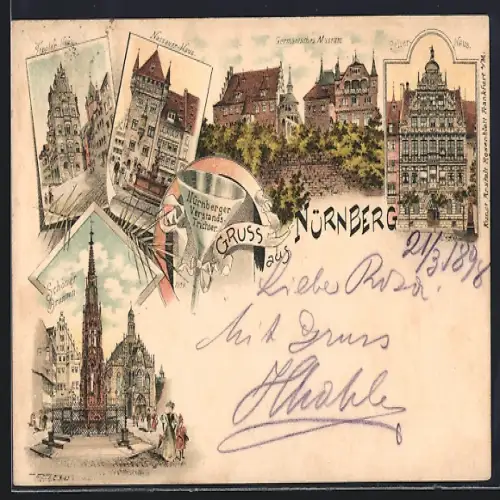 Nassauer-Haus
Germanisches Museum
Peller-Haus
Kunst-Anstalt Rosenblatt Frankfurt a/M.
Nürnberger
Verstands-
Trichter.
GRUSS
aus
NÜRNBERG
Schöner
Brunnen
21/3 1898
Liebe Rosa!
Mit Gruss